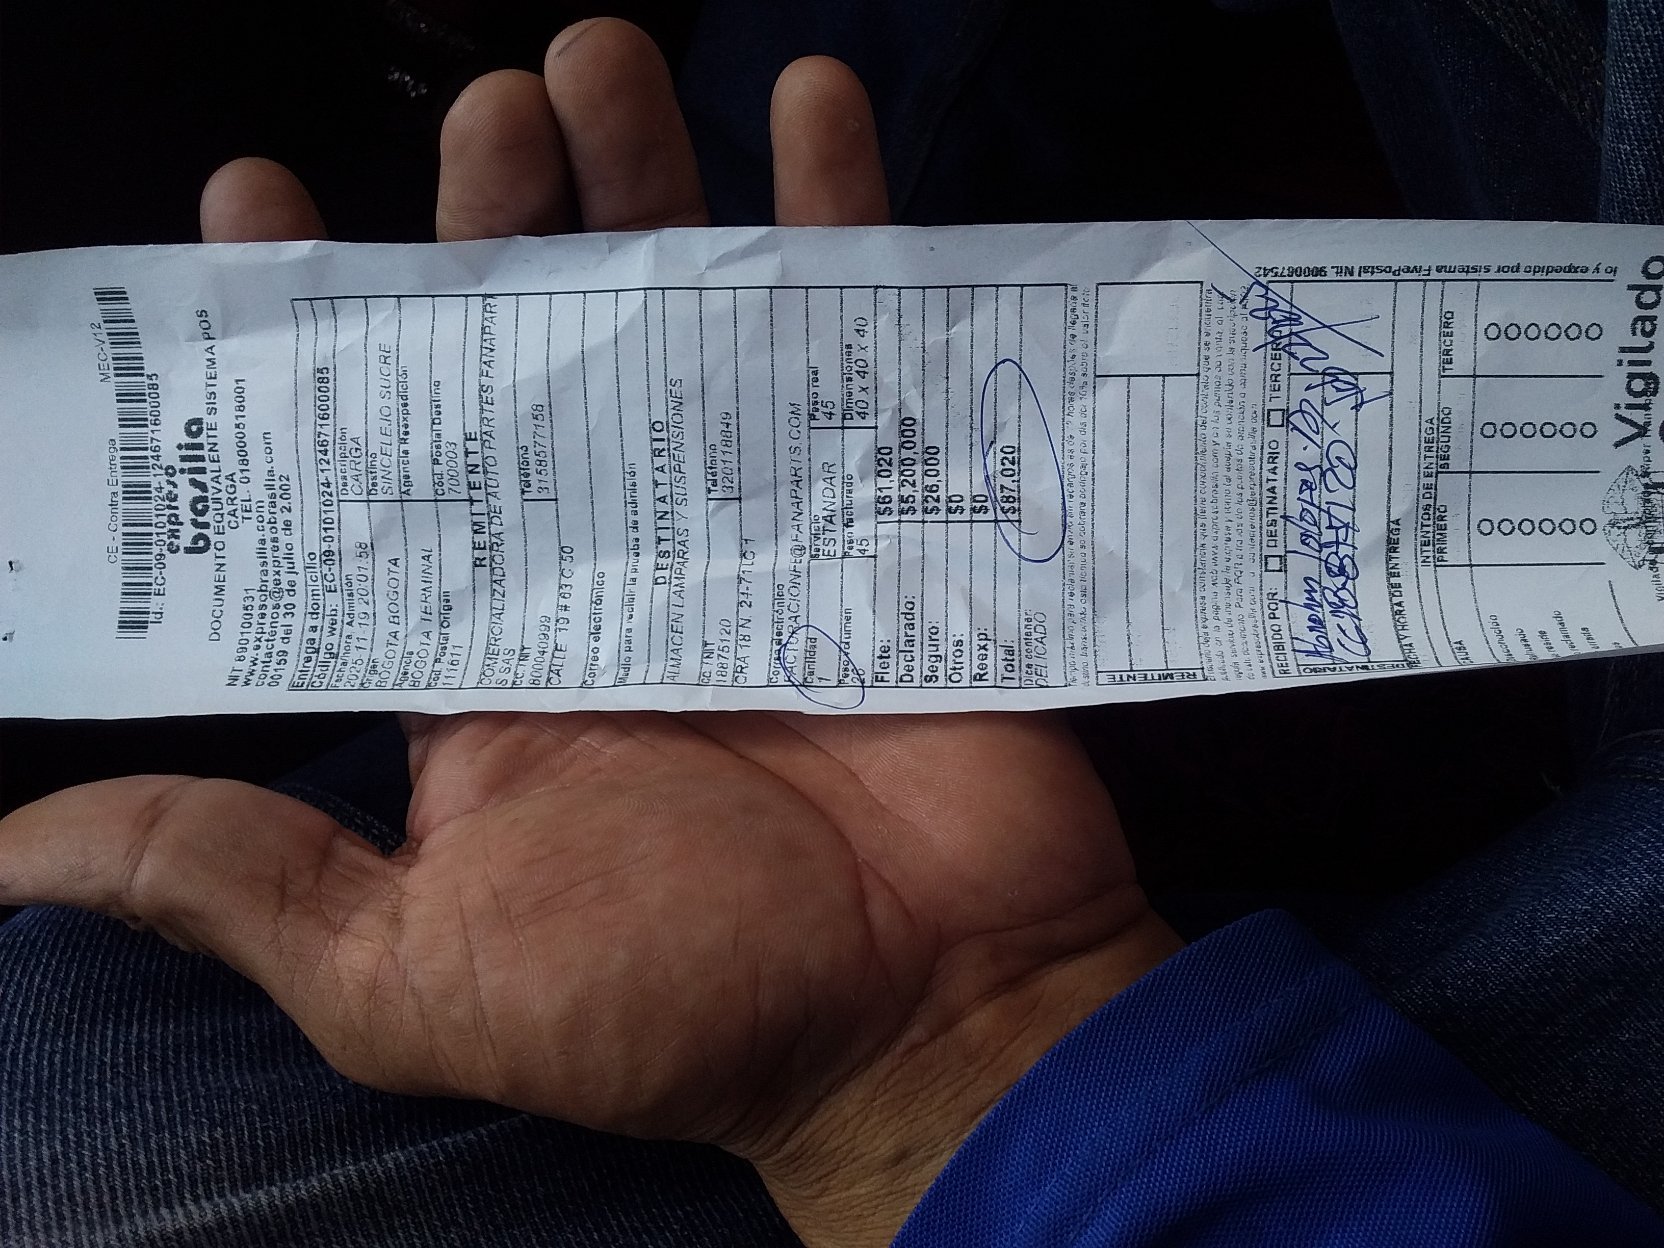 CE - Contra Entrega MEC-V12
Id.: EC-09-0101024-12467160085
expreso
brasilia
DOCUMENTO EQUIVALENTE SISTEMA POS
CARGA
NIT 890100531 TEL. 018000518001
www.expresobrasilia.com
contactenos@expresobrasilia.com
00159 del 30 de julio de 2.002
Entrega a domicilio
Código Web: EC-09-0101024-12467160085
Fecha/hora Admisión Descripción
2025.11.19 20:01:58 CARGA
Origen Destino
BOGOTA BOGOTA SINCELEJO SUCRE
Agencia Agencia Reexpedición
BOGOTA TERMINAL
Cod. Postal Origen Cód. Postal Destino
111611 700003
REMITENTE
COMERCIALIZADORA DE AUTO PARTES FANAPART
S SAS
CC / NIT Teléfono
800040999 3158577158
CALLE 19 # 63 C 50
Correo electrónico
Medio para recibir la prueba de admisión
DESTINATARIO
ALMACEN LAMPARAS Y SUSPENSIONES
CC / NIT Teléfono
18875120 320118849
CRA 18 N 24-71 LC 1
Correo electrónico
FACTURACIONFE@FANAPARTS.COM
Cantidad Servicio Peso real
1 ESTANDAR 45
Peso volumen Peso facturado Dimensiones
26 45 40 x 40 x 40
Flete: $61,020
Declarado: $5,200,000
Seguro: $26,000
Otros: $0
Reexp: $0
Total: $87,020
Dice contener:
DELICADO
REMITENTE
RECIBIDO POR: DESTINATARIO TERCERO
DESTINATARIO
FECHA Y HORA DE ENTREGA
INTENTOS DE ENTREGA
CAUSA PRIMERO SEGUNDO TERCERO
io y expedido por sistema FivePostal Nit. 900067542
Vigilado